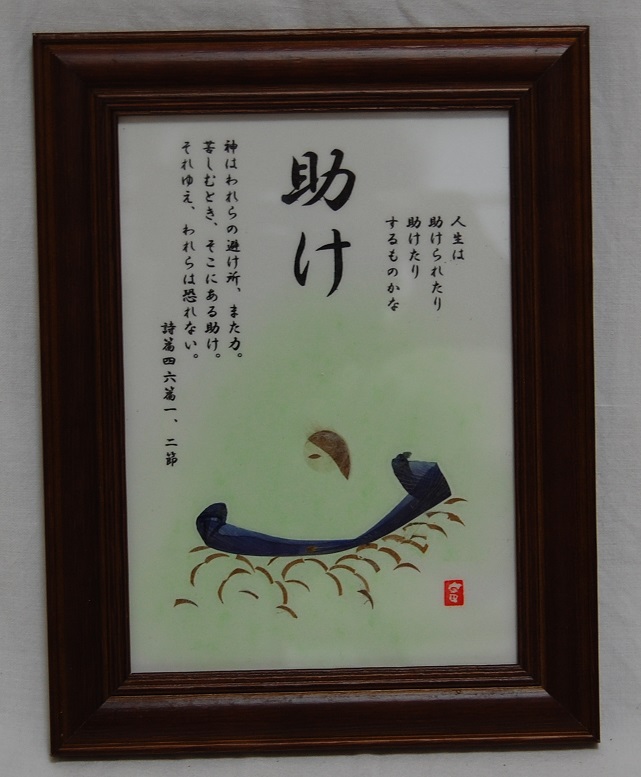 人生は
助けられたり
助けたり
するものかな
助け
神はわれらの避け所、また力。
苦しむとき、そこにある助け。
それゆえ、われらは恐れない。
詩篇四六篇一、二節